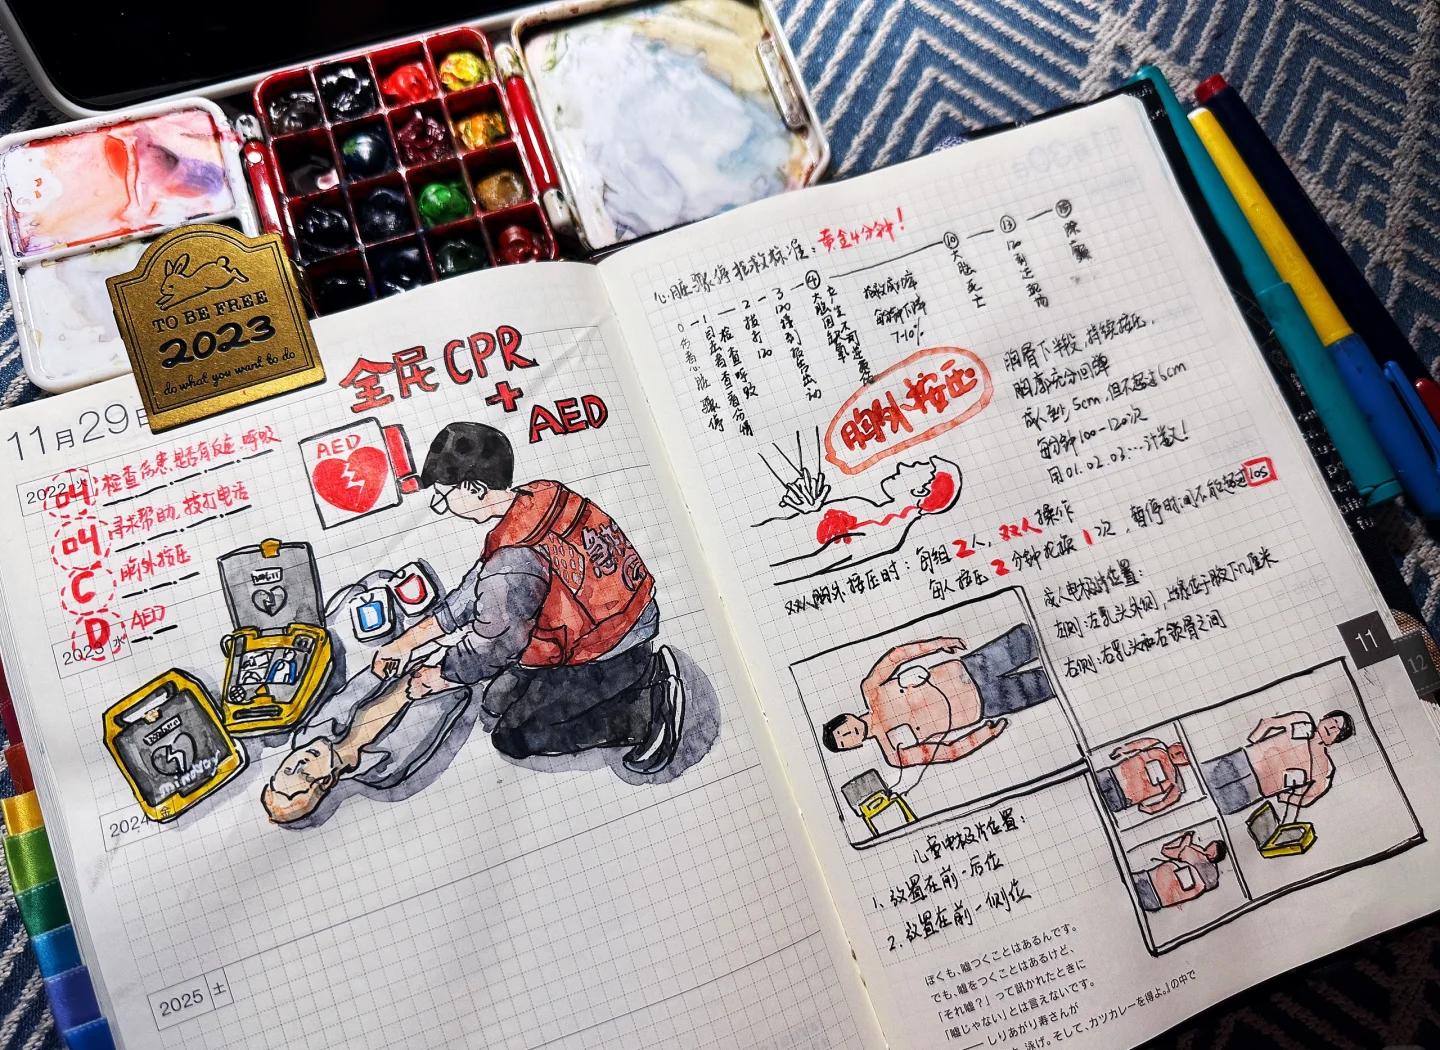 TO BE FREE
2023
do what you want to do
11月29日
全民CPR
+
AED
AED
2022
04 检查伤患是否有反应.呼吸
04 寻求帮助,拨打电话
C 胸外按压
D AED
2023 水
2024 金
2025 土
心脏骤停抢救标准:黄金4分钟!
0 — 1 — 2 — 3 — ④ — ⑩ — ⑬ — ⑮
伤者心脏骤停
拨打120
120接到
出动
抢救成功率
每分钟下降
7-10%
大脑死亡
120到达现场
胸外按压
胸骨下半段,持续按压,
胸廓充分回弹
成人至少5cm,但不超过6cm
每分钟100-120次
用01.02.03…计数!
双人胸外按压时:每组2人,双人操作
每人按压2分钟轮换1次,暂停时间不能超过10s
成人电极片位置:
左侧:左乳头外侧,上缘位于腋下几厘米
右侧:右乳头和右锁骨之间
儿童电极片位置:
1、放置在前-后位
2、放置在前-侧位
11
12
ぼくも、嘘つくことはあるんです。
でも、嘘をつくことはあるけど、
「それ嘘?」って訊かれたときに
「嘘じゃない」とは言えないです。
——しりあがり寿さんが
泳げ。そして、カツカレーを得よ。』の中で